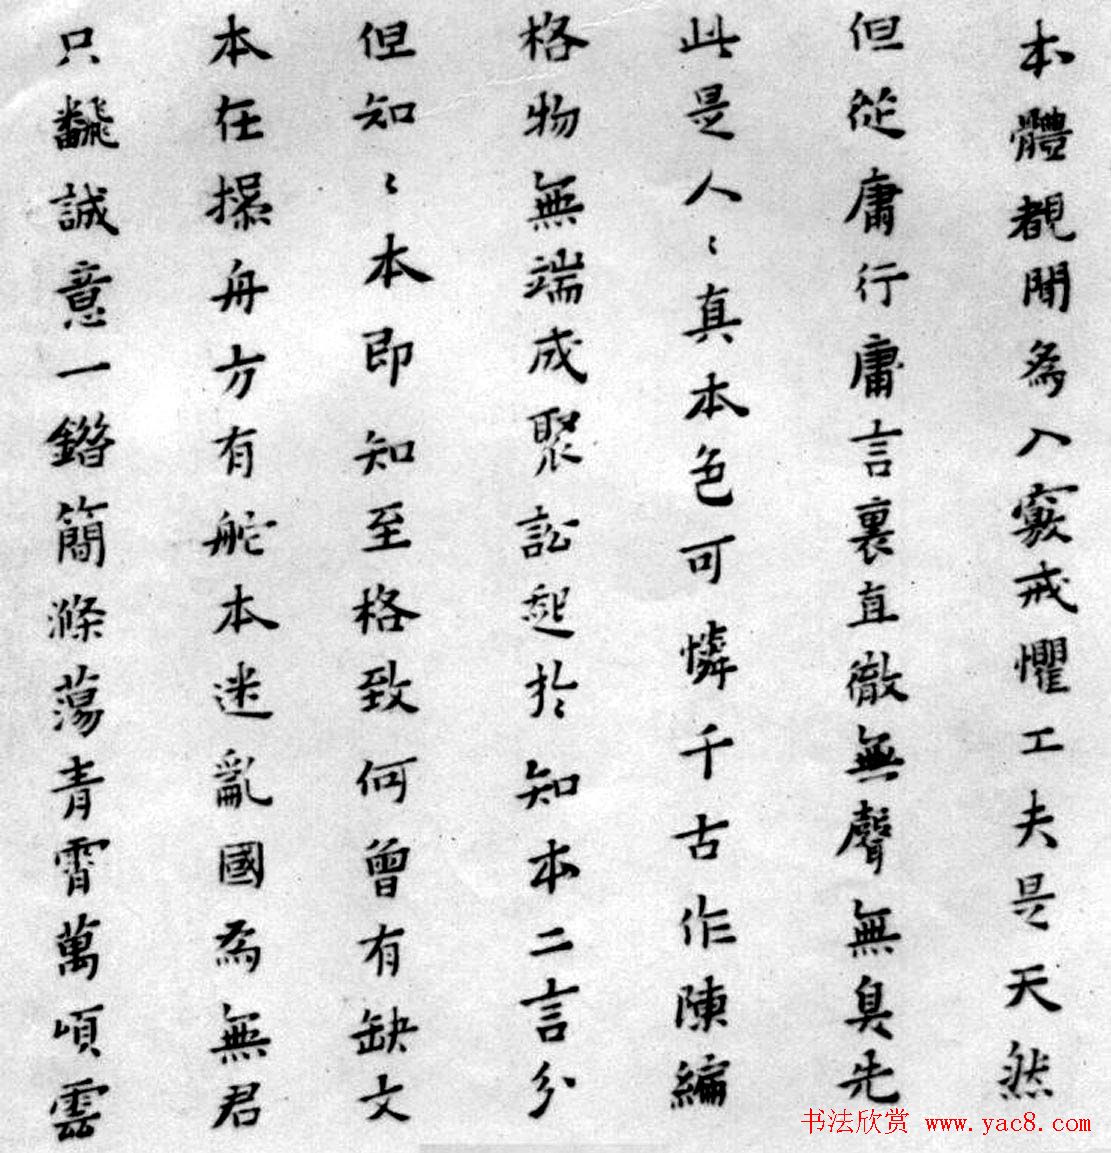 本體覩聞為入竅戒懼工夫是天然
但從庸行庸言裏直徹無聲無臭先
此是人〻真本色可憐千古作陳編
格物無端成聚訟起於知本二言分
但知〻本即知至格致何曾有缺文
本在操舟方有舵本迷亂國為無君
只飜誠意一鐕簡滌蕩青霄萬頃雲
书法欣赏 www.yac8.com